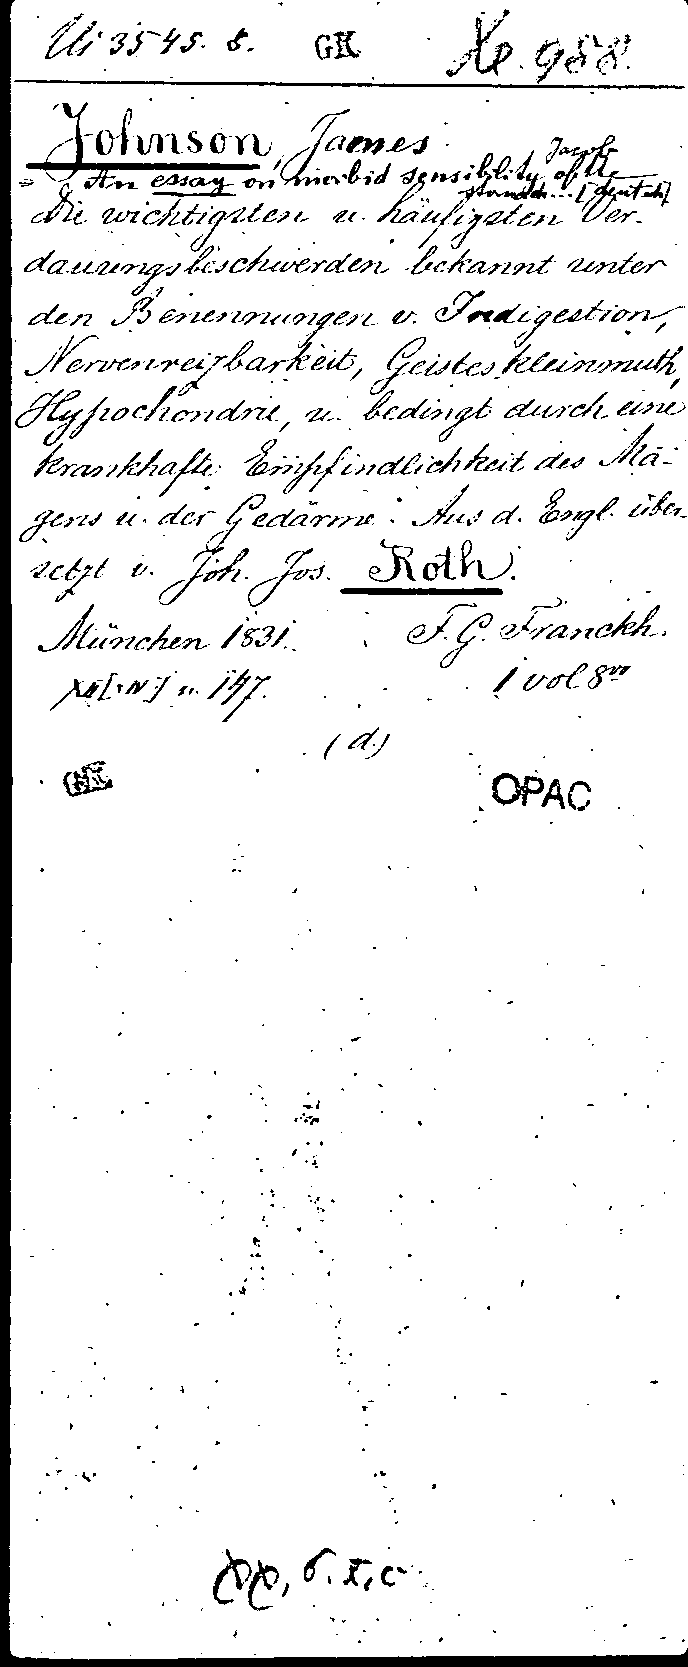 Ui 3545. 8. GK Xe. 958.
Johnson, James
Jacob
= An essay on morbid sensibility of the
stomach... [deutsch]
Die wichtigsten u. häufigsten Ver-
dauungsbeschwerden bekannt unter
den Benennungen v. Indigestion,
Nervenreizbarkeit, Geisteskleinmuth,
Hypochondrie, u. bedingt durch eine
krankhafte Empfindlichkeit des Ma-
gens u. der Gedärme. Aus d. Engl. über-
setzt v. Joh. Jos. Roth.
München 1831. F. G. Franckh.
XII[+IV] u. 147. 1 vol 8vo
(d.)
GK OPAC